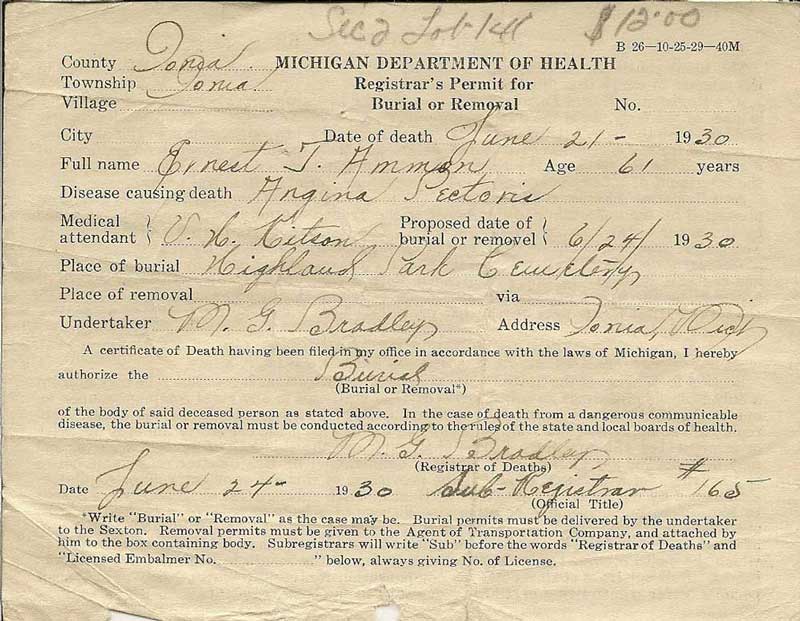 Sec 2 Lot 141 $12.00
B 26—10-25-29—40M
County Ionia MICHIGAN DEPARTMENT OF HEALTH
Township Ionia Registrar's Permit for
Village Burial or Removal No.
City Date of death June 21- 1930
Full name Ernest T. Ammon Age 61 years
Disease causing death Angina Pectoris
Medical attendant V. H. Kitson Proposed date of burial or removel 6/24/ 1930
Place of burial Highland Park Cemetery
Place of removal via
Undertaker M. G. Bradley Address Ionia, Mich
A certificate of Death having been filed in my office in accordance with the laws of Michigan, I hereby
authorize the Burial
(Burial or Removal*)
of the body of said deceased person as stated above. In the case of death from a dangerous communicable
disease, the burial or removal must be conducted according to the rules of the state and local boards of health.
M. G. Bradley
(Registrar of Deaths)
Date June 24- 1930 Sub-Registrar #165
(Official Title)
*Write "Burial" or "Removal" as the case may be. Burial permits must be delivered by the undertaker
to the Sexton. Removal permits must be given to the Agent of Transportation Company, and attached by
him to the box containing body. Subregistrars will write "Sub" before the words "Registrar of Deaths" and
"Licensed Embalmer No. " below, always giving No. of License.